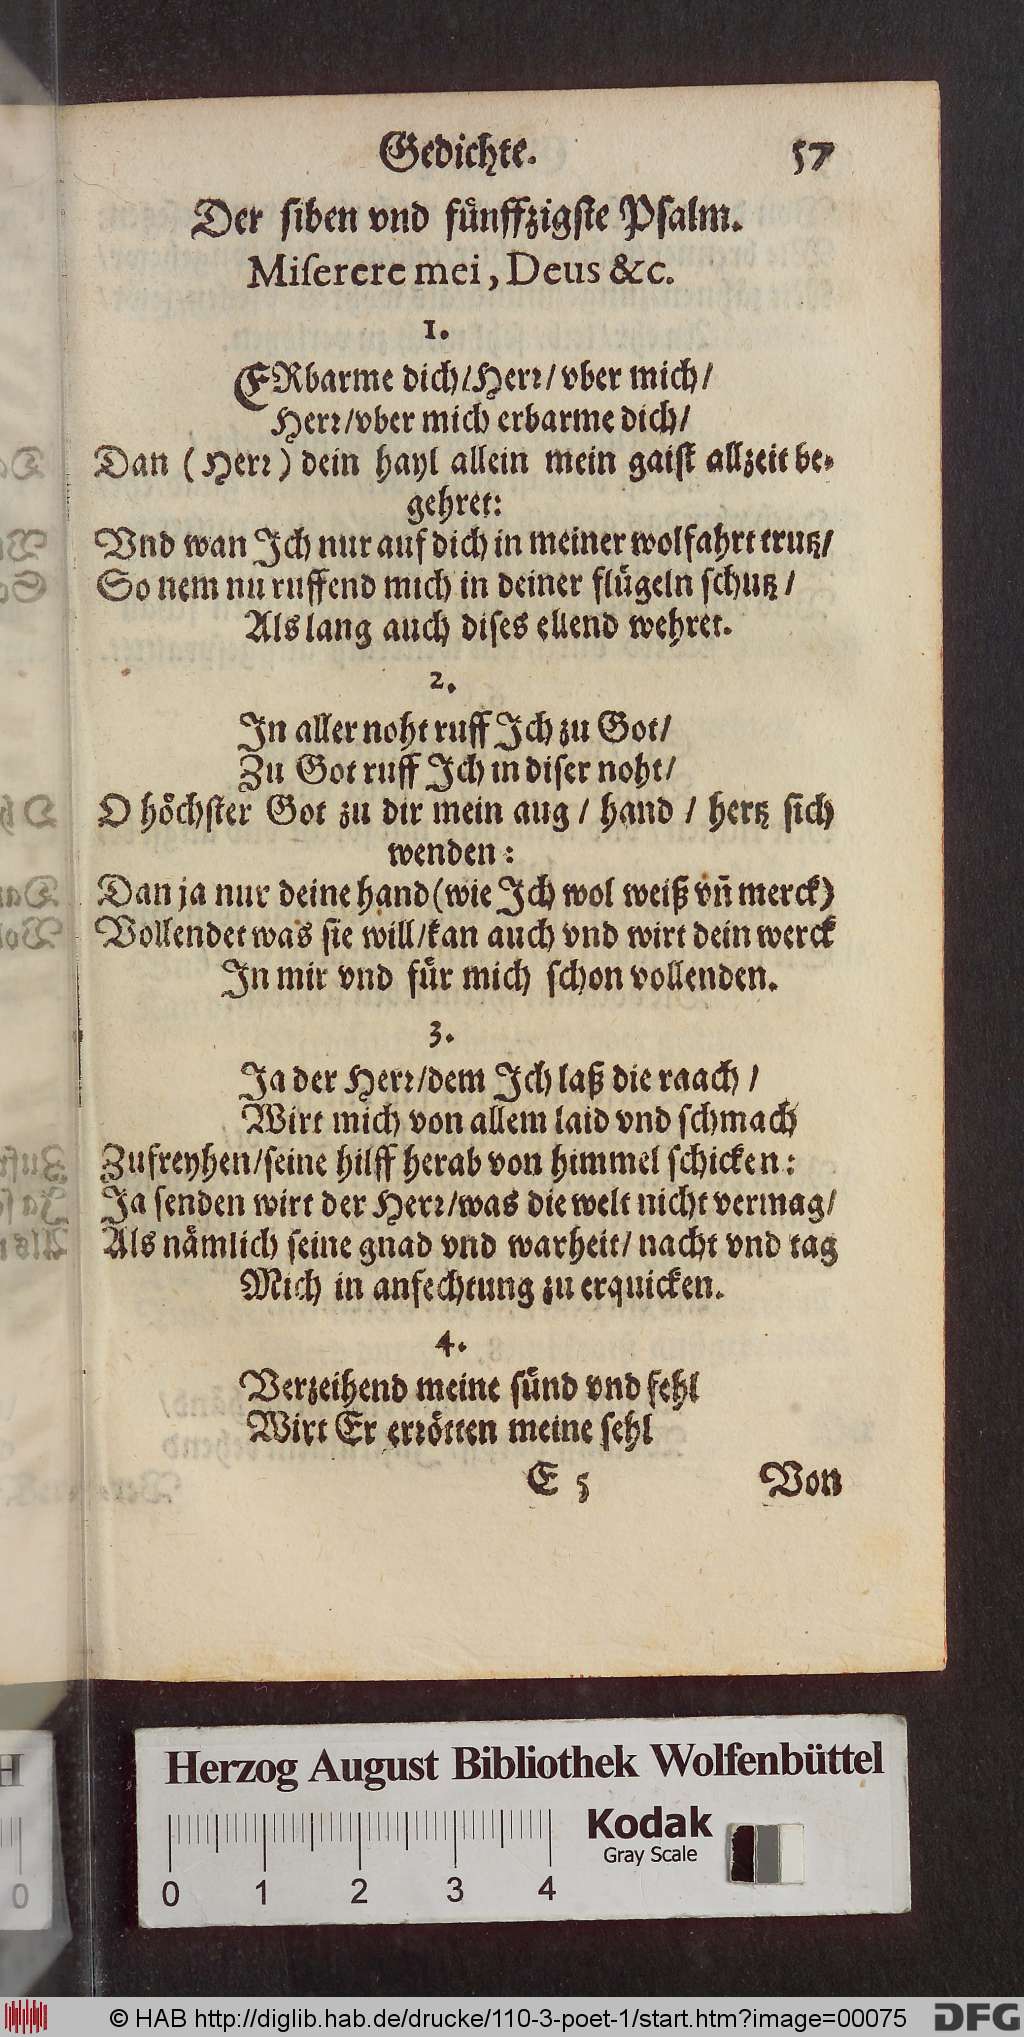 Gedichte. 57
Der siben vnd fünffzigste Psalm.
Miserere mei, Deus &c.
1.
ERbarme dich/Herr/vber mich/
Herr/vber mich erbarme dich/
Dan (Herr) dein hayl allein mein gaist allzeit be-
gehret:
Vnd wan Ich nur auf dich in meiner wolfahrt trutz/
So nem nu ruffend mich in deiner flügeln schutz/
Als lang auch dises ellend wehret.
2.
In aller noht ruff Ich zu Got/
Zu Got ruff Ich in diser noht/
O höchster Got zu dir mein aug / hand / hertz sich
wenden:
Dan ja nur deine hand (wie Ich wol weiß vñ merck)
Vollendet was sie will/kan auch vnd wirt dein werck
In mir vnd für mich schon vollenden.
3.
Ja der Herr/dem Ich laß die raach /
Wirt mich von allem laid vnd schmach
Zufreyhen/seine hilff herab von himmel schicken:
Ja senden wirt der Herr/was die welt nicht vermag/
Als nämlich seine gnad vnd warheit/ nacht vnd tag
Mich in anfechtung zu erquicken.
4.
Verzeihend meine sünd vnd fehl
Wirt Er errötten meine sehl
E 5 Von
Herzog August Bibliothek Wolfenbüttel
Kodak
Gray Scale
0 1 2 3 4
© HAB http://diglib.hab.de/drucke/110-3-poet-1/start.htm?image=00075 DFG